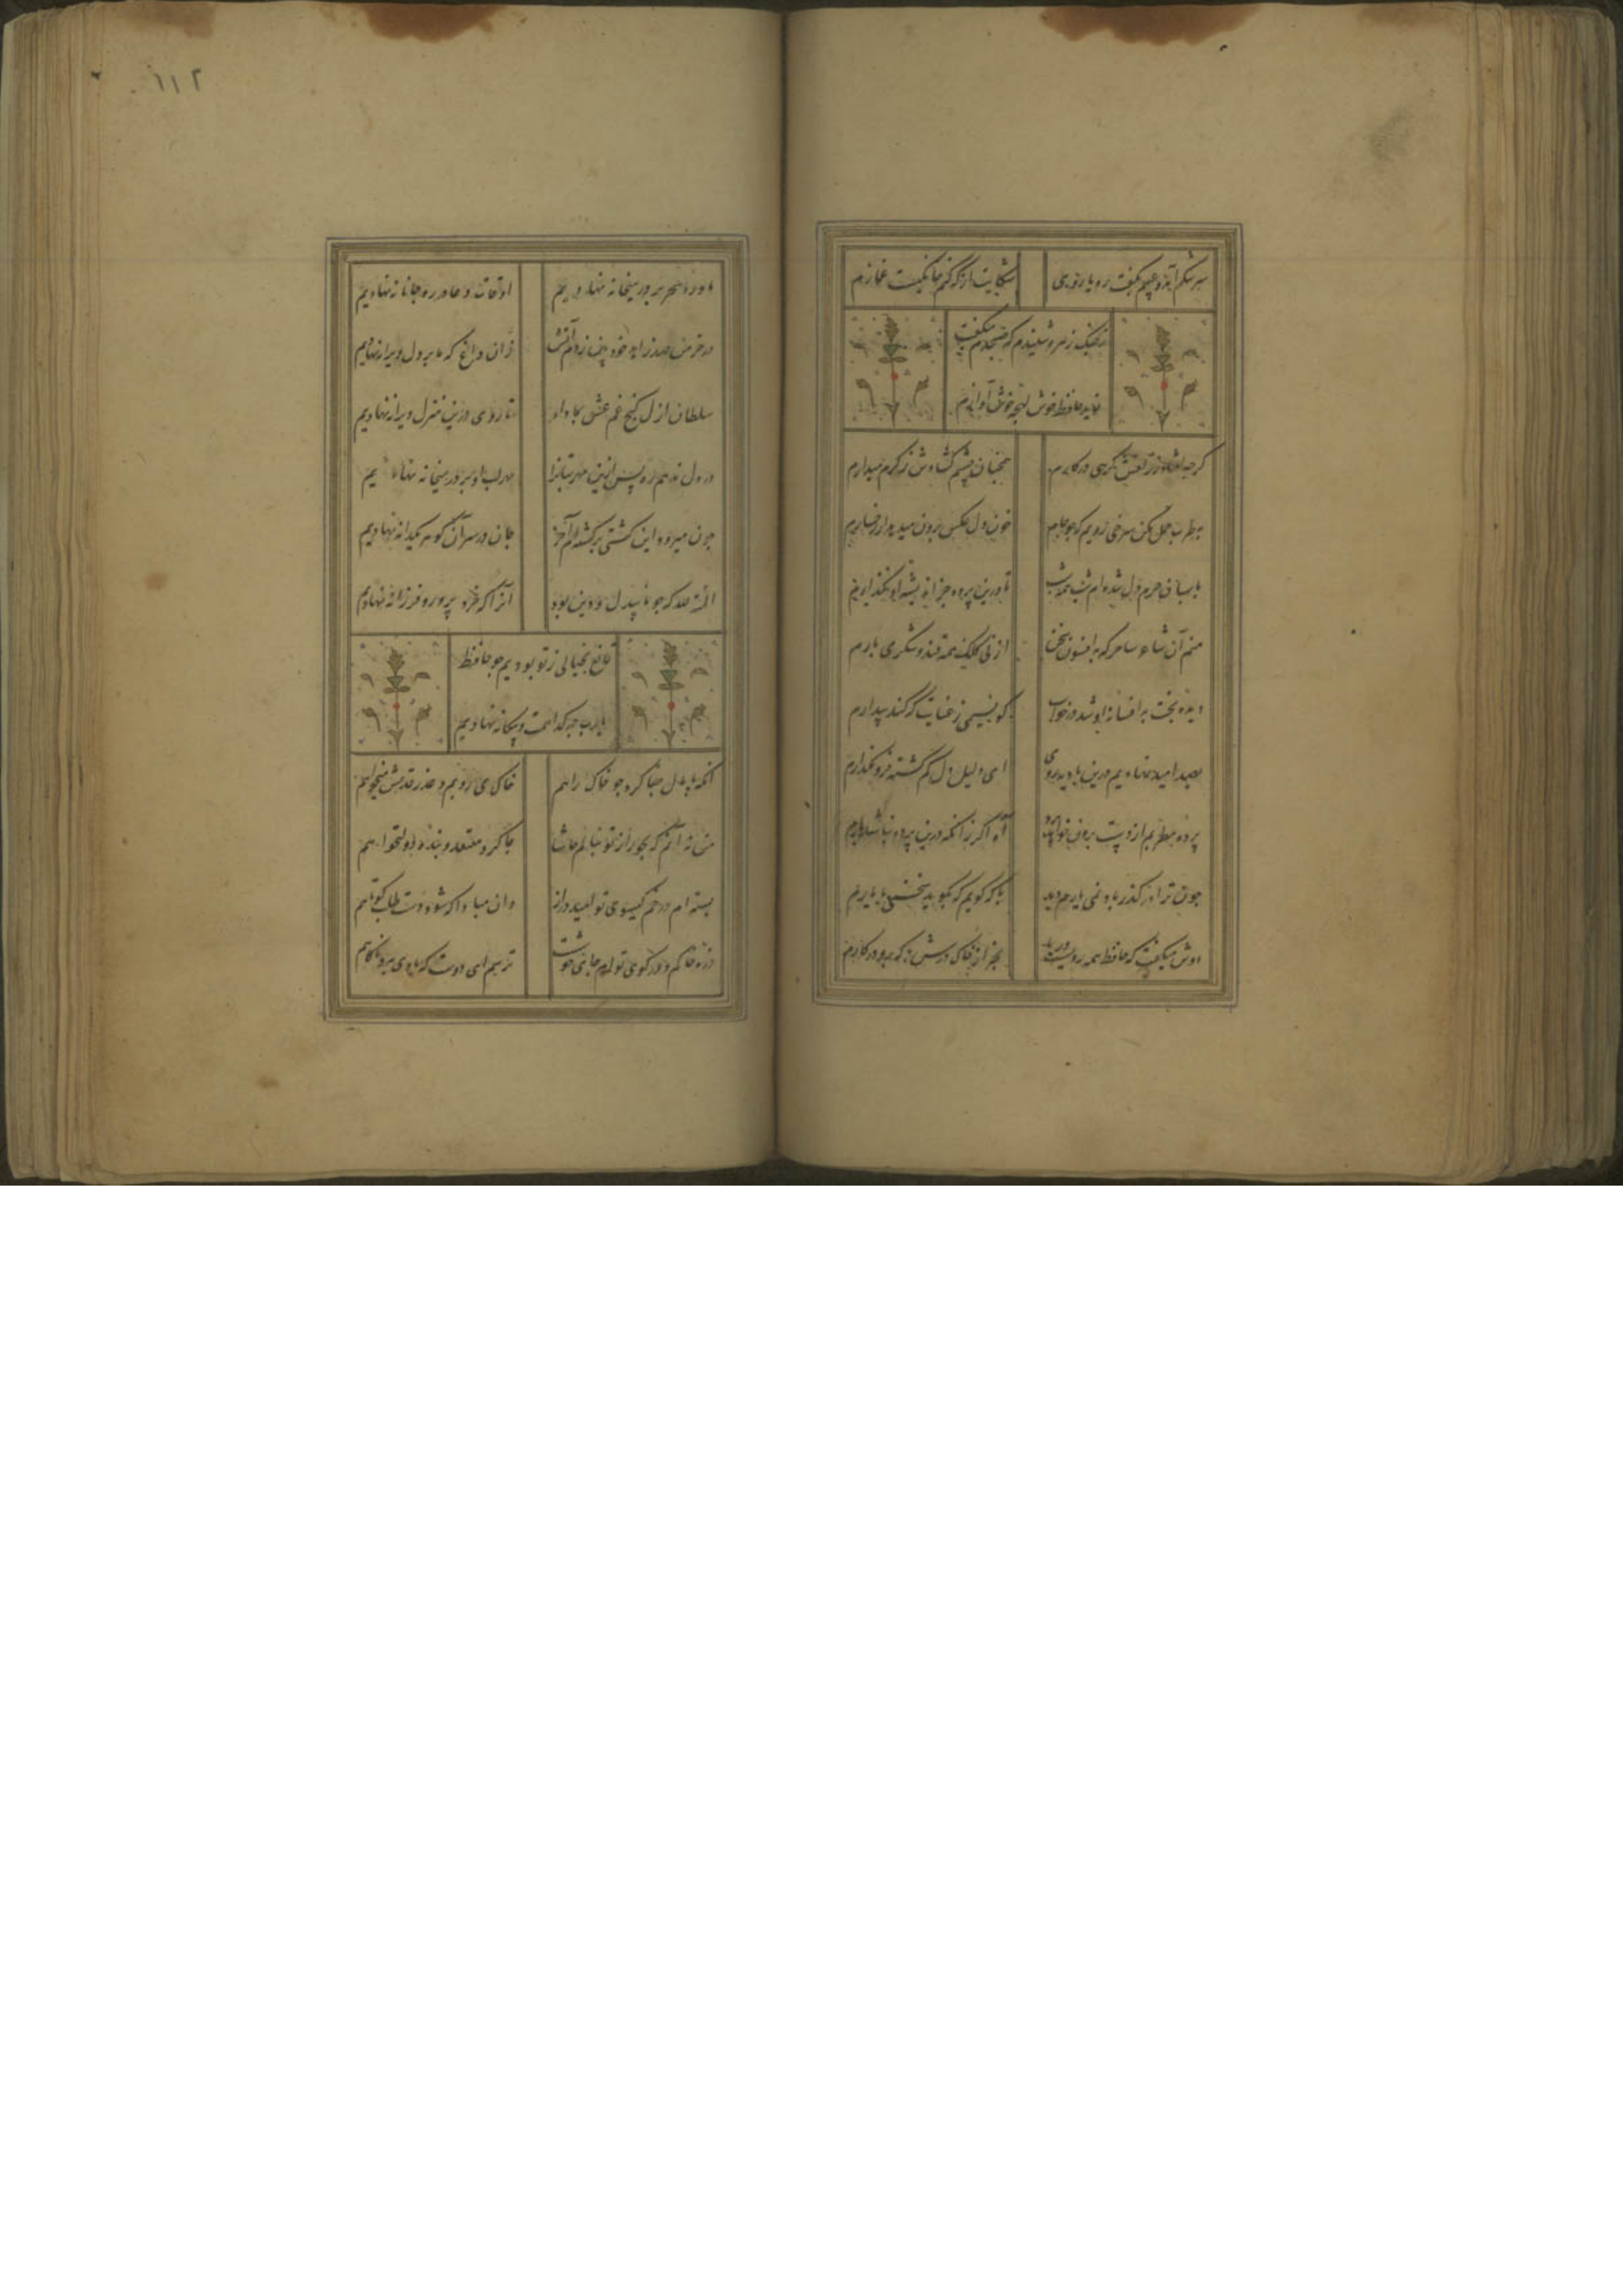 سرشکم آمد و عیبم بگفت رویاروی
شکایت از که کنم خانگیست غمازم
ز چنگ زهره شنیدم که صبحدم میگفت
غلام حافظ خوش لهجه خوش آوازم
گرچه افتاد ز زلفش گرهی در کارم
همچنان چشم گشادش ز کرم میدارم
بطرب حمل مکن سرخی رویم که چو جام
خون دل عکس برون میدهد از رخسارم
پاسبان حرم دل شده ام شب همه شب
تا درین پرده جز اندیشه او نگذارم
منم آن شاعر ساحر که بافسون سخن
از نی کلک همه قند و شکر می بارم
دیده بخت به افسانه او شد در خواب
کو نسیمی ز عنایت که کند بیدارم
بصد امید نهادیم درین بادیه روی
ای دلیل دل گم گشته فرو نگذارم
پرده مطربم از دست برون خواهد برد
آه اگر زانکه درین پرده نباشد بارم
چون ترا در گذر باد نمی یارم دید
با که گویم که بگوید سخنی با یارم
دوش میگفت که حافظ همه رویست و ریا
بجز از خاک درش با که بود در کارم
۲۱۲
ما ورد سحر بر در میخانه نهادیم
اوقات دعا در ره جانانه نهادیم
در خرمن صد زاهد خود بین زدم آتش
زان داغ که ما بر دل دیوانه نهادیم
سلطان ازل گنج غم عشق بما داد
تا روی درین منزل ویرانه نهادیم
در دل ندهم ره پس ازین مهر بتانرا
مهر لب او بر در میخانه نهادیم
چون میرود این کشتی سرگشته که آخر
جان در سر آن گوهر یکدانه نهادیم
المنه لله که چو ما بیدل و دین بود
آنرا که خرد پرور و فرزانه نهادیم
قانع بخیالی ز تو بودیم چو حافظ
یارب چه گدا همت و بیگانه نهادیم
آنکه پامال جفا کرد چو خاک راهم
خاک می بوسم و عذر قدمش میخواهم
من نه آنم که بجور از تو بنالم حاشا
چاکر و معتقد و بنده دولتخواهم
بسته ام در خم گیسوی تو امید دراز
وان مبادا که شود دست طلب کوتاهم
ذره خاکم و در کوی توام جای خوشت
ترسم ای دوست که بادی ببرد ناگاهم